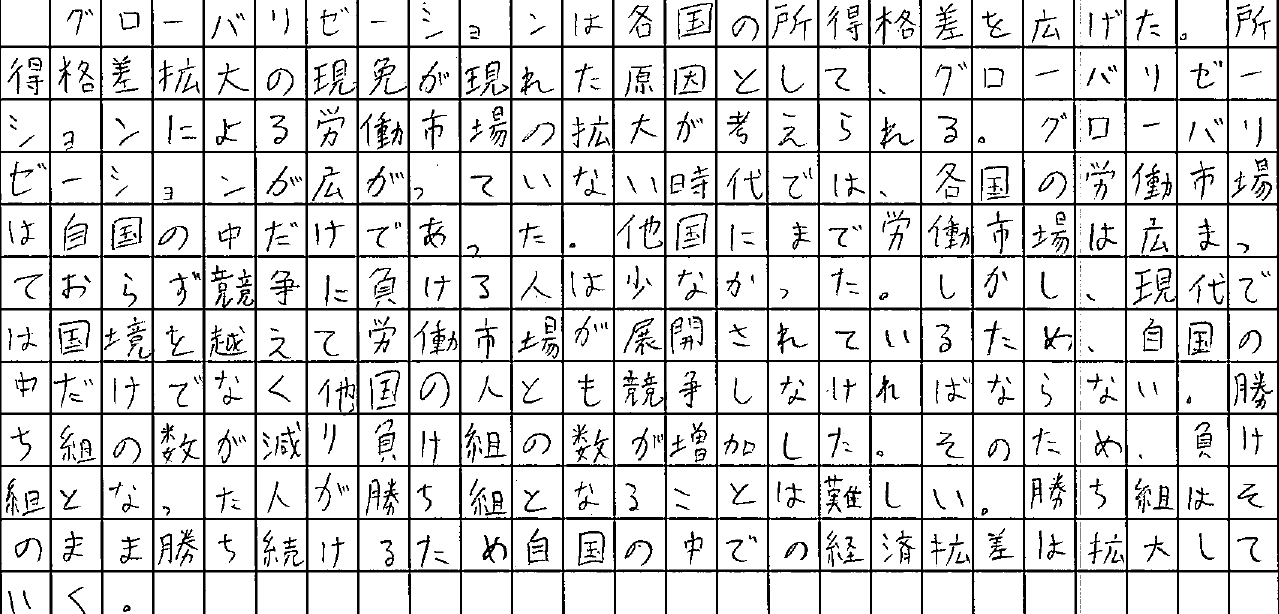 グローバリゼーションは各国の所得格差を広げた。所
得格差拡大の現免が現れた原因として、グローバリゼー
ションによる労働市場の拡大が考えられる。グローバリ
ゼーションが広がっていない時代では、各国の労働市場
は自国の中だけであった。他国にまで労働市場は広まっ
ておらず競争に負ける人は少なかった。しかし、現代で
は国境を越えて労働市場が展開されているため、自国の
中だけでなく他国の人とも競争しなければならない。勝
ち組の数が減り負け組の数が増加した。そのため、負け
組となった人が勝ち組となることは難しい。勝ち組はそ
のまま勝ち続けるため自国の中での経済拡差は拡大して
いく。